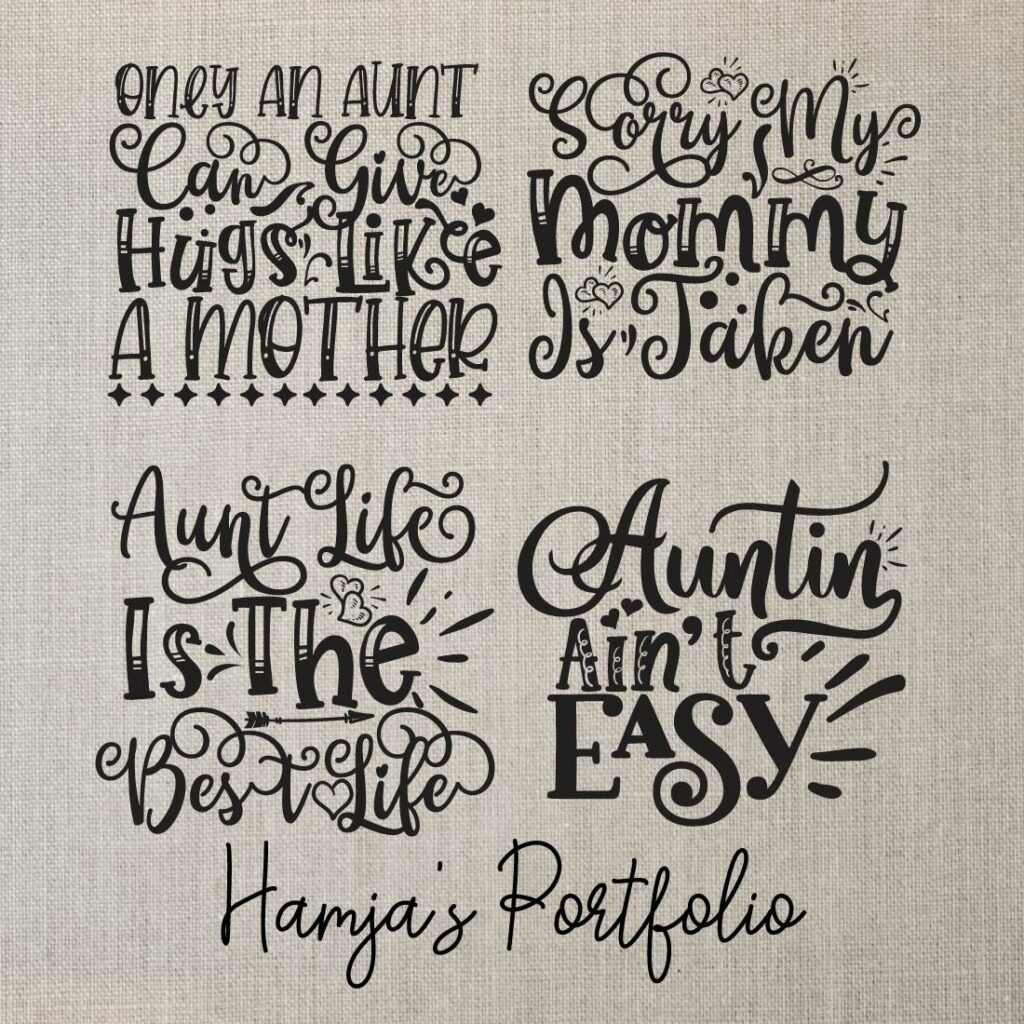 ONLY AN AUNT
Can Give
Hügs Like
A MOTHER
Sorry My
Mommy
Is Täken
Aunt Life
Is The
Best Life
Auntin
Ain't
EASY
Hamja's Portfolio